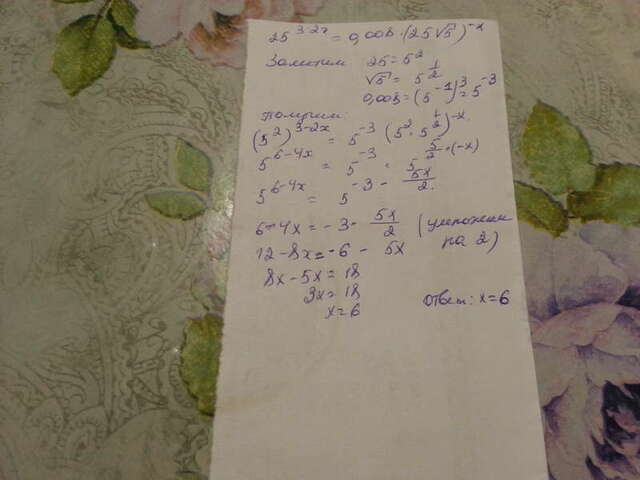 25^{3-2x} = 0,008·(25√5)^{-x}
Заменим 25 = 5^2
√5 = 5^{1/2}
0,008 = (5^{-1})^3 = 5^{-3}
Получим
(5^2)^{3-2x} = 5^{-3} (5^2·5^{1/2})^{-x}
5^{6-4x} = 5^{-3} · 5^{5/2·(-x)}
5^{6-4x} = 5^{-3 - 5x/2}
6-4x = -3 - 5x/2 (умножим на 2)
12-8x = -6 - 5x
8x - 5x = 18
3x = 18
x = 6
Ответ: x = 6